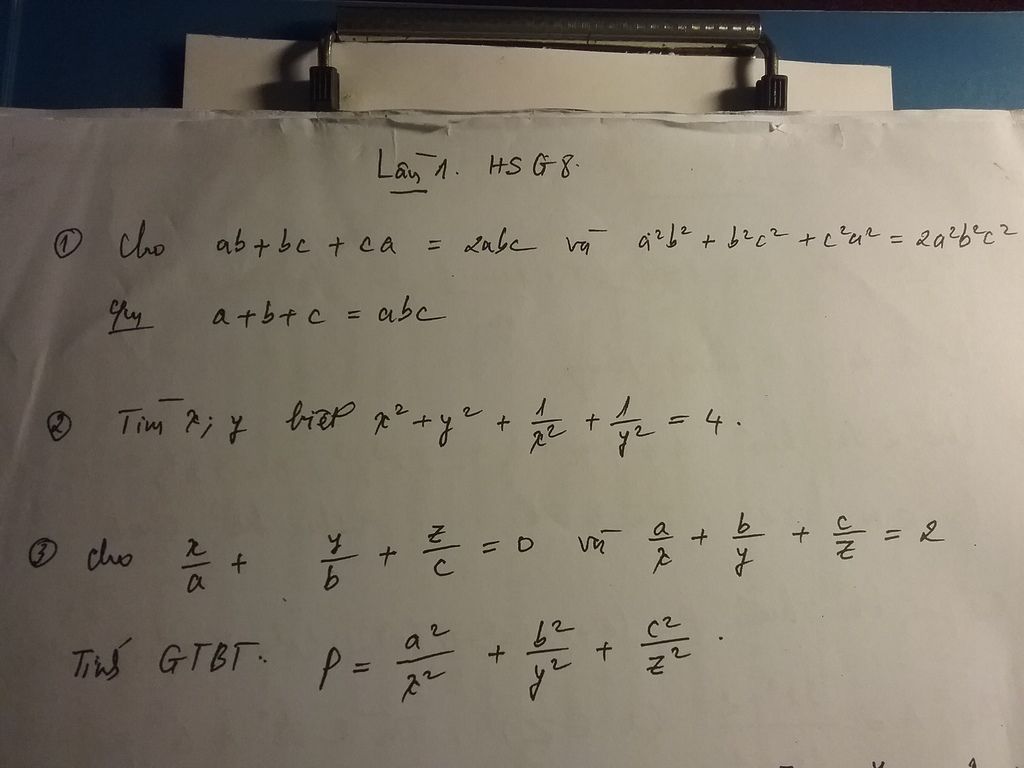 Lần 1. HSG 8.
① Cho ab + bc + ca = 2abc và a²b² + b²c² + c²a² = 2a²b²c²
a + b + c = abc
② Tìm x; y biết x² + y² + 1/x² + 1/y² = 4.
③ cho x/a + y/b + z/c = 0 và a/x + b/y + c/z = 2
Tính GTBT. P = a²/x² + b²/y² + c²/z².